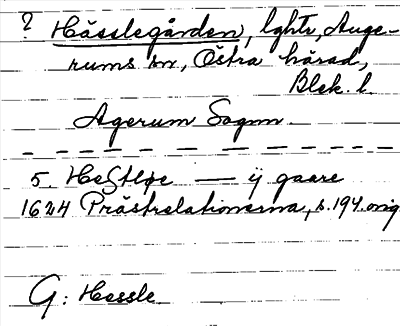 ? Hässlegården, lght, Auge-
rums sn, Östra härad,
Blek. l.
Agerum Sogn.
5. Heslløe — ij gaare
1624 Prästrelationerna, s. 194. orig.
G: Hessle